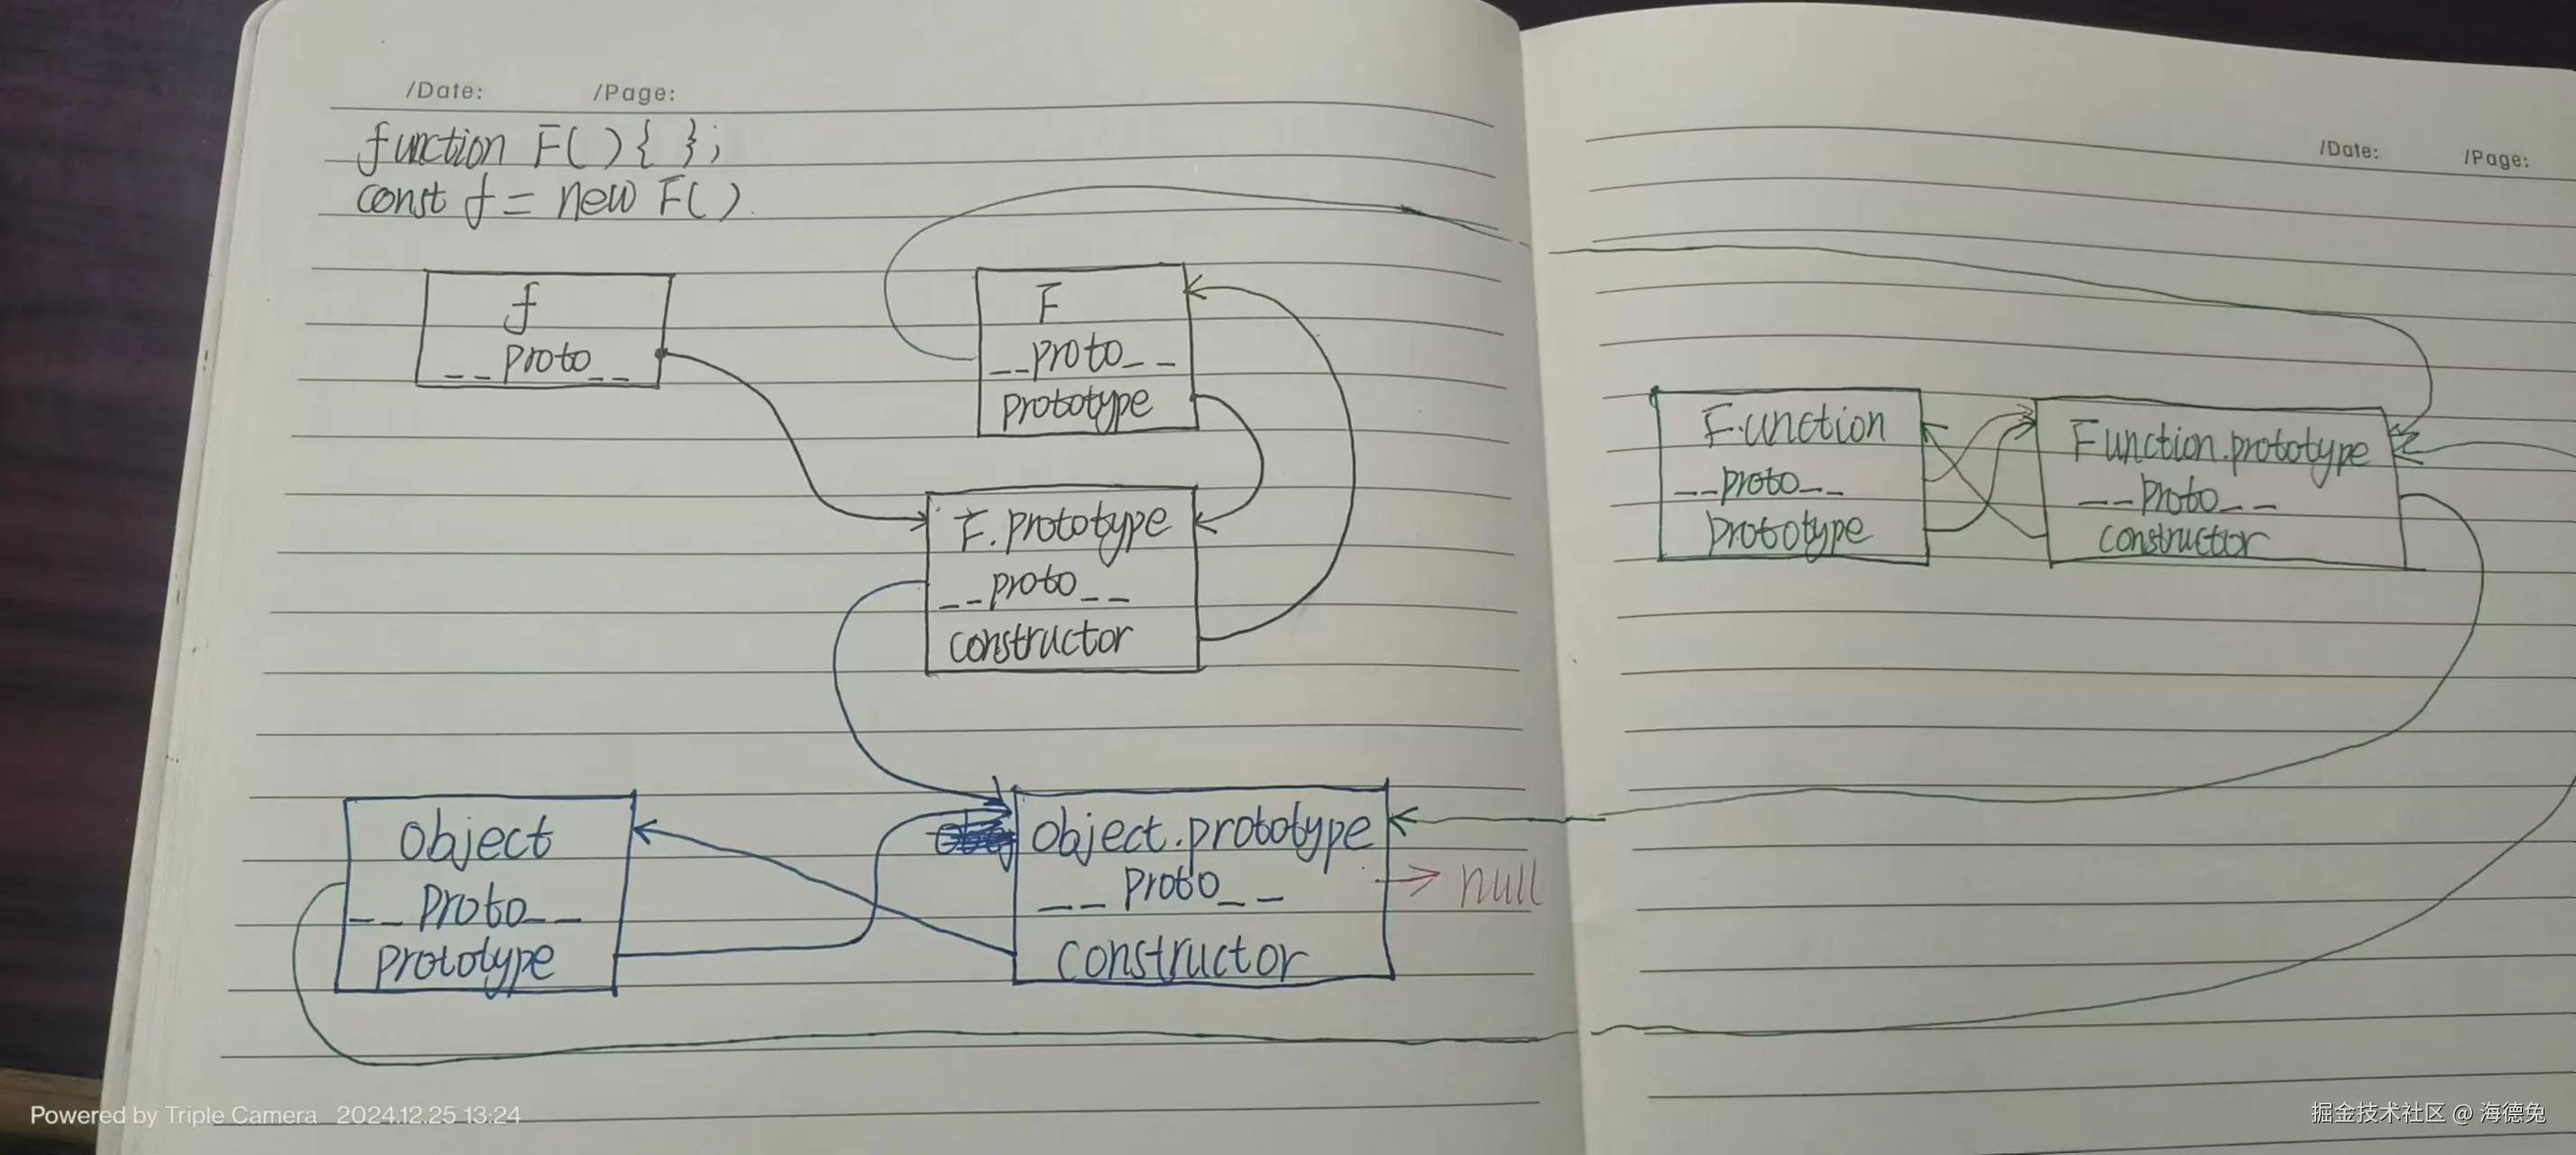 /Date: /Page:
function F(){ };
const f = new F()
f
__proto__
F
__proto__
prototype
F.prototype
__proto__
constructor
object
__proto__
prototype
object.prototype
__proto__
constructor
null
/Date: /Page:
F.unction
__proto__
prototype
Function.prototype
__proto__
constructor
Powered by Triple Camera 2024.12.25 13:24
掘金技术社区 @ 海德兔